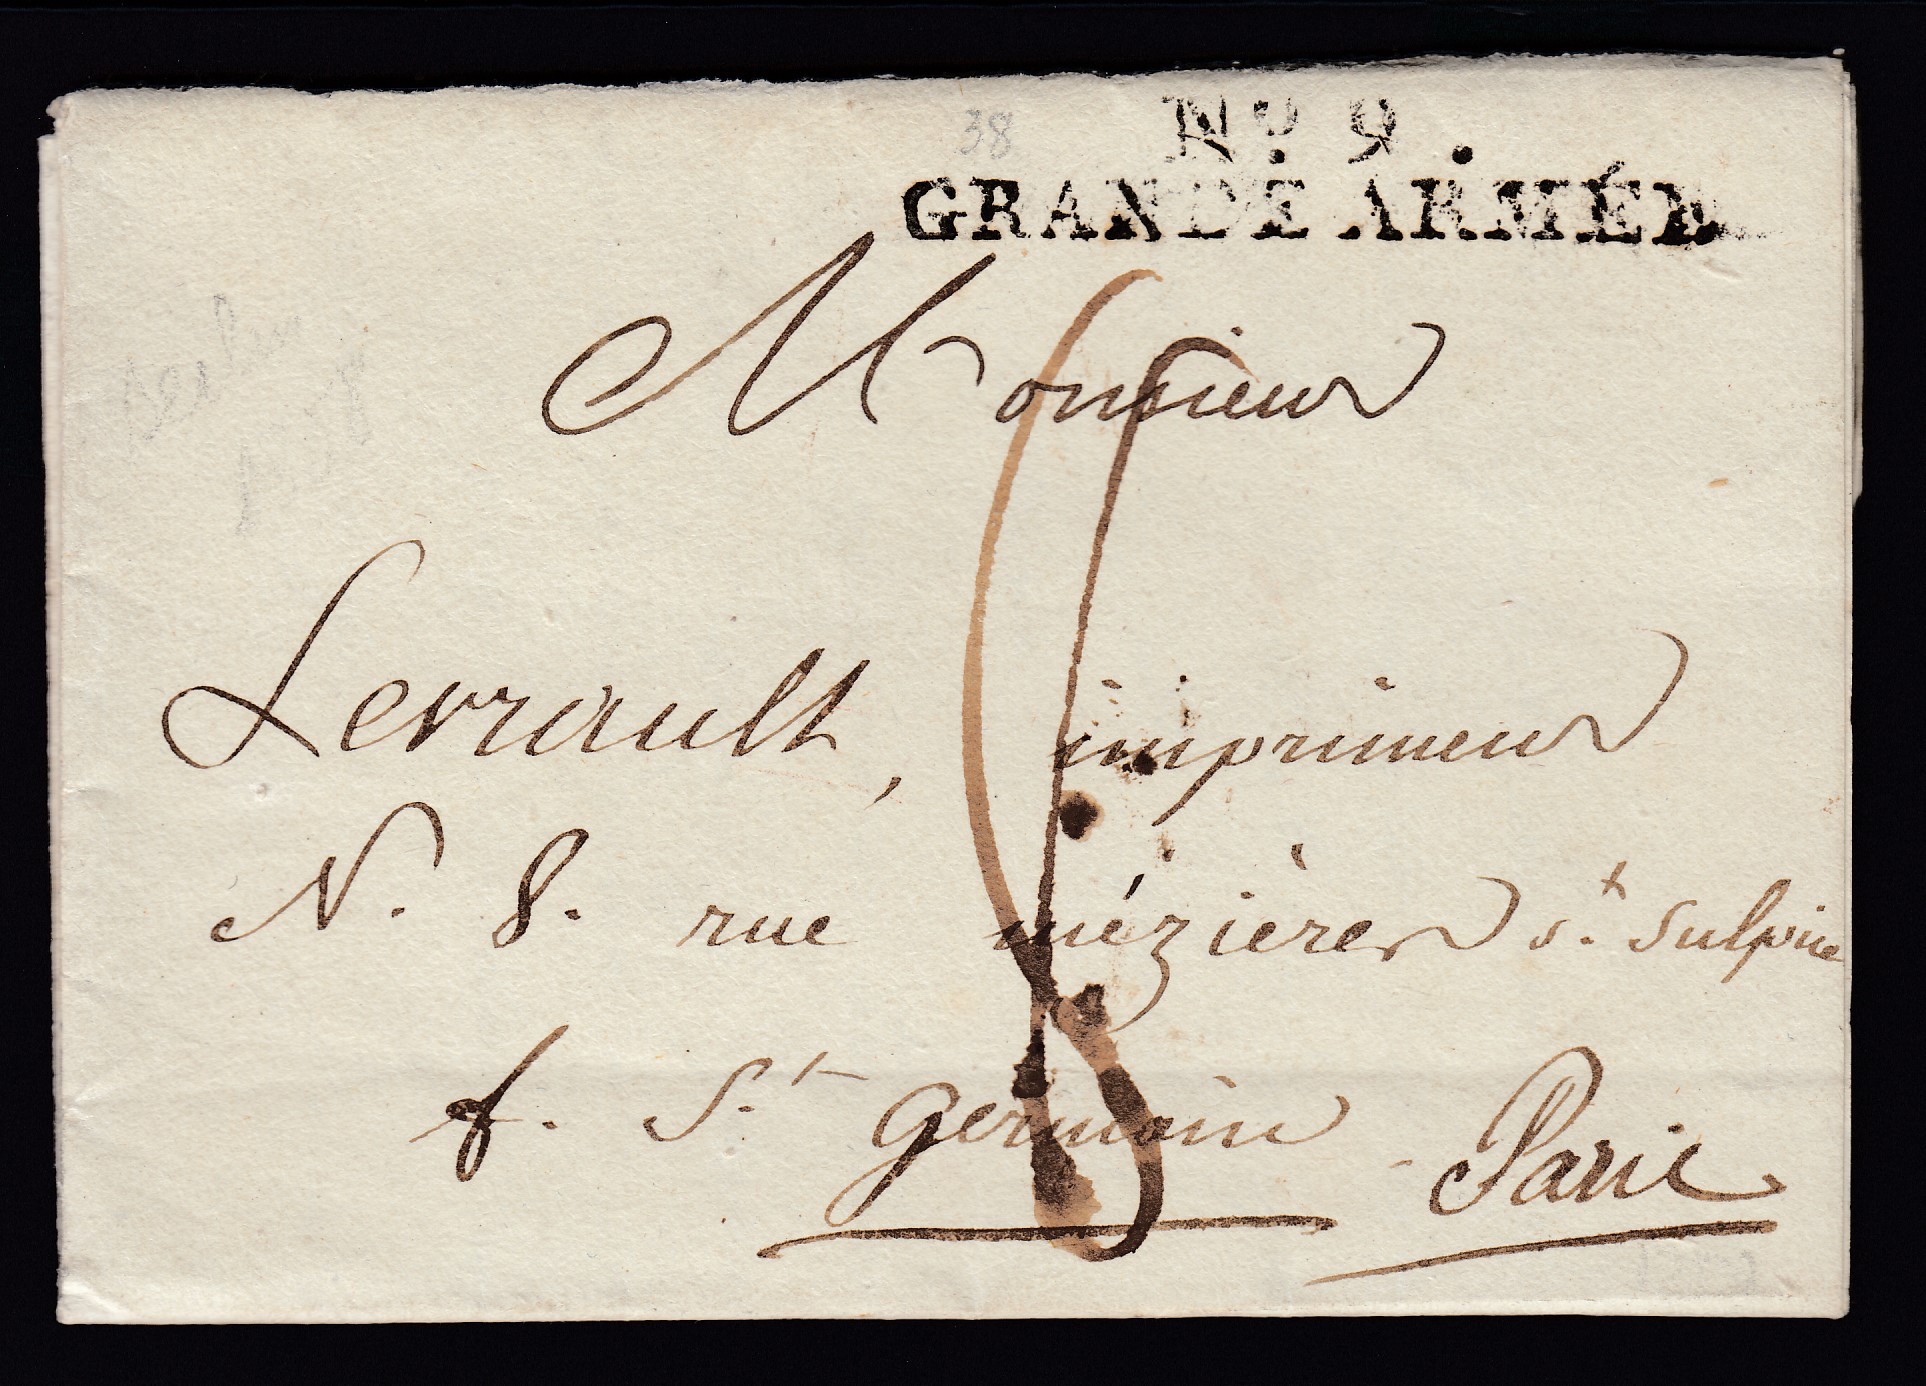 38
N.º 9.
GRANDE ARMÉE
Monsieur
Levrault, imprimeur
N. 8. rue mézières S.t Sulpice
f. S.t Germain
Paris
8